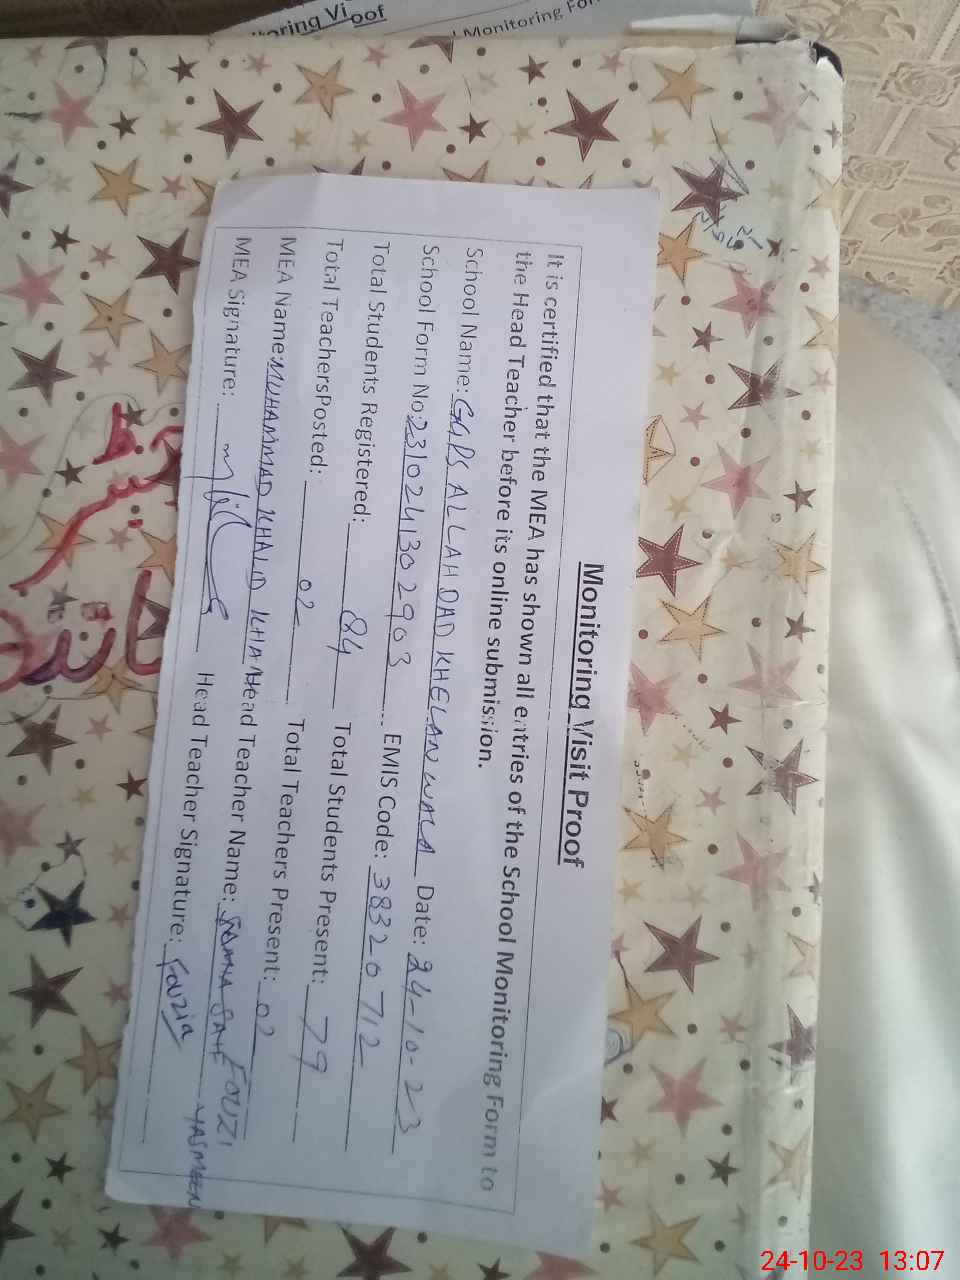 Monitoring Visit Proof
It is certified that the MEA has shown all entries of the School Monitoring Form to
the Head Teacher before its online submission.
School Name: GGPS ALLAH DAD KHELANWALA Date: 24-10-23
School Form No: 231024130 2903 EMIS Code: 38320712
Total Students Registered: 84 Total Students Present: 79
Total TeachersPosted: 02 Total Teachers Present: 02
MEA Name: MUHAMMAD KHALID KHAN Head Teacher Name: FOUZI YASMEEN
MEA Signature: Head Teacher Signature: Fouzia
Monitoring
oof
Monitoring For
24-10-23 13:07